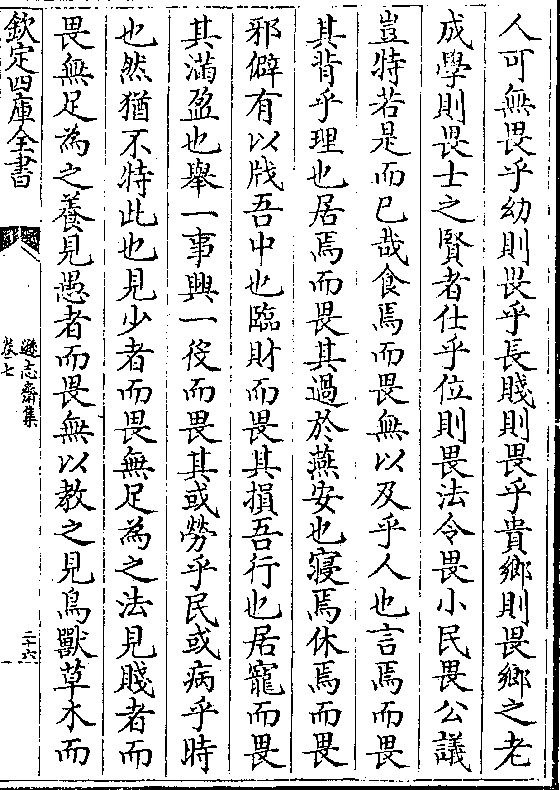 人可無畏乎幼則畏乎長賤則畏乎貴鄉則畏鄉之老
成學則畏士之賢者仕乎位則畏法令畏小民畏公議
豈特若是而已哉食焉而畏無以及乎人也言焉而畏
其背乎理也居焉而畏其過於燕安也寢焉休焉而畏
邪僻有以戕吾中也臨財而畏其損吾行也居寵而畏
其滿盈也舉一事興一役而畏其或勞乎民或病乎時
也然猶不特此也見少者而畏無足為之法見賤者而
畏無足為之養見愚者而畏無以教之見鳥獸草木而
欽定四庫全書
遜志齋集
卷七
二十六